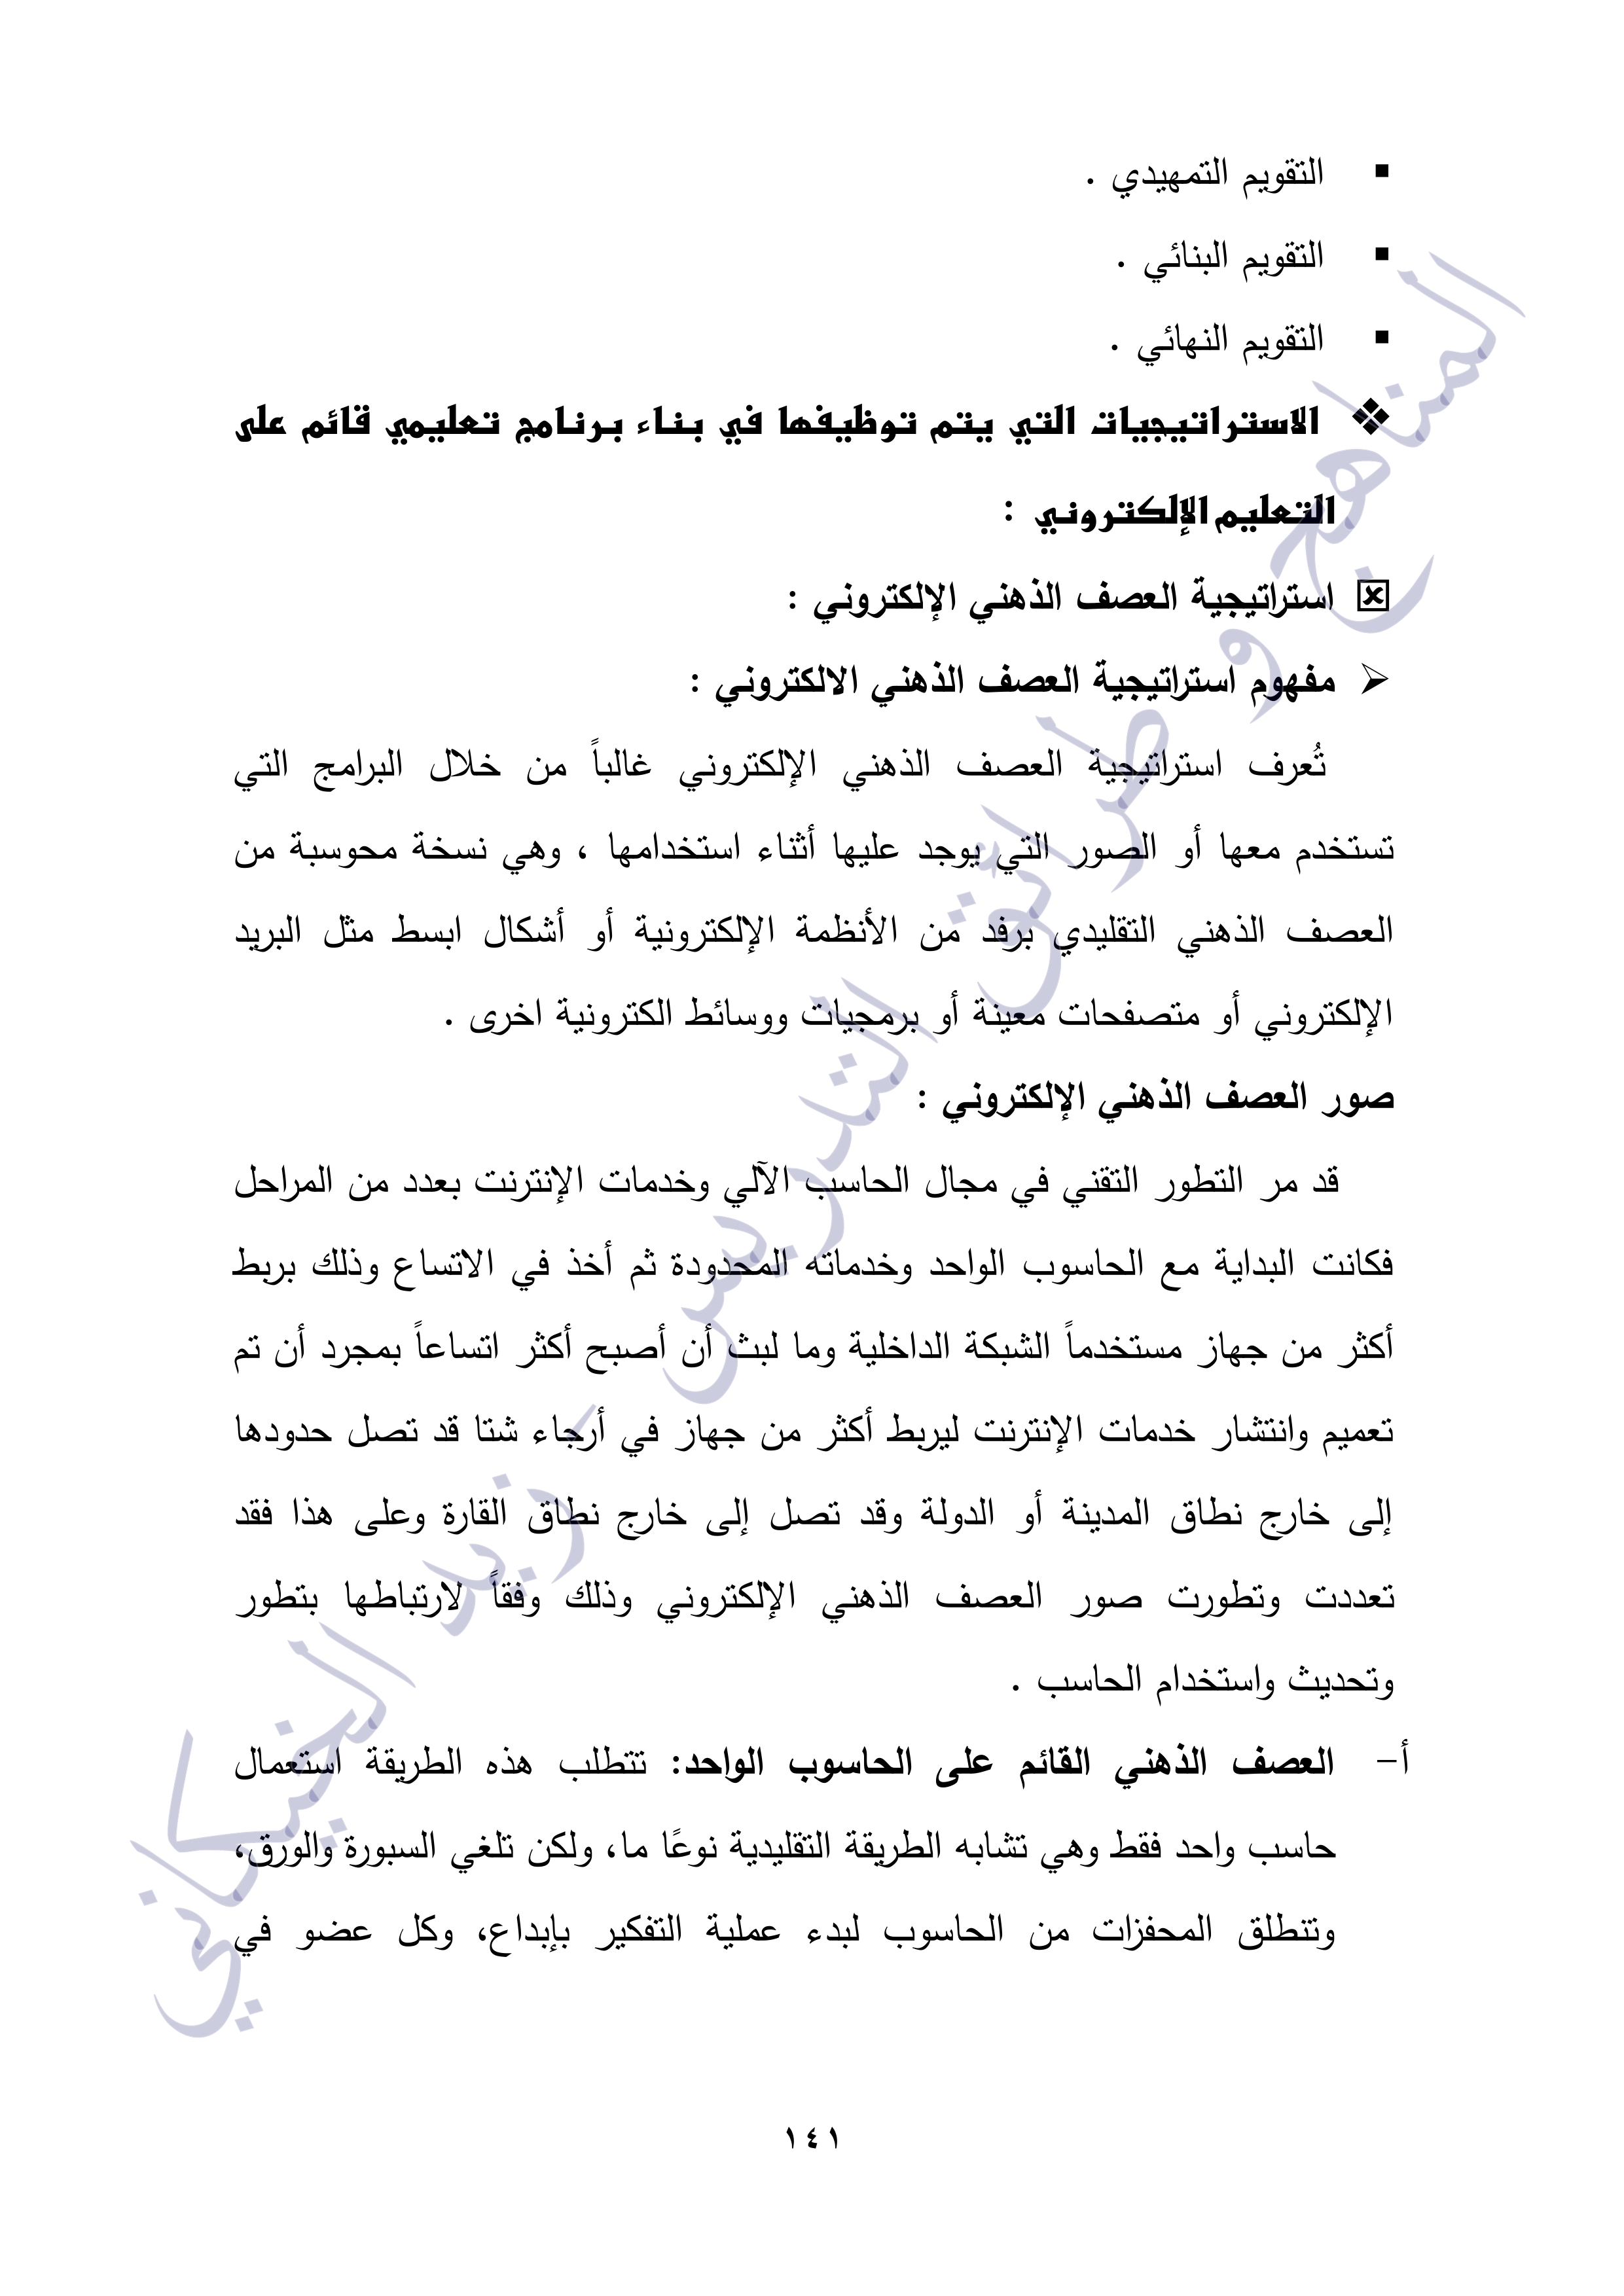 ▪ التقويم التمهيدي .
▪ التقويم البنائي .
▪ التقويم النهائي .
❖ الاستراتيجيات التي يتم توظيفها في بناء برنامج تعليمي قائم على
التعليم الإلكتروني :
☒ استراتيجية العصف الذهني الإلكتروني :
➢ مفهوم استراتيجية العصف الذهني الالكتروني :
تُعرف استراتيجية العصف الذهني الإلكتروني غالباً من خلال البرامج التي
تستخدم معها أو الصور التي يوجد عليها أثناء استخدامها ، وهي نسخة محوسبة من
العصف الذهني التقليدي برفد من الأنظمة الإلكترونية أو أشكال ابسط مثل البريد
الإلكتروني أو متصفحات معينة أو برمجيات ووسائط الكترونية اخرى .
صور العصف الذهني الإلكتروني :
قد مر التطور التقني في مجال الحاسب الآلي وخدمات الإنترنت بعدد من المراحل
فكانت البداية مع الحاسوب الواحد وخدماته المحدودة ثم أخذ في الاتساع وذلك بربط
أكثر من جهاز مستخدماً الشبكة الداخلية وما لبث أن أصبح أكثر اتساعاً بمجرد أن تم
تعميم وانتشار خدمات الإنترنت ليربط أكثر من جهاز في أرجاء شتا قد تصل حدودها
إلى خارج نطاق المدينة أو الدولة وقد تصل إلى خارج نطاق القارة وعلى هذا فقد
تعددت وتطورت صور العصف الذهني الإلكتروني وذلك وفقاً لارتباطها بتطور
وتحديث واستخدام الحاسب .
أ- العصف الذهني القائم على الحاسوب الواحد: تتطلب هذه الطريقة استعمال
حاسب واحد فقط وهي تشابه الطريقة التقليدية نوعًا ما، ولكن تلغي السبورة والورق،
وتنطلق المحفزات من الحاسوب لبدء عملية التفكير بإبداع، وكل عضو في
١٤١
المناهج و طرائق التدريس - زيد الخيكاني